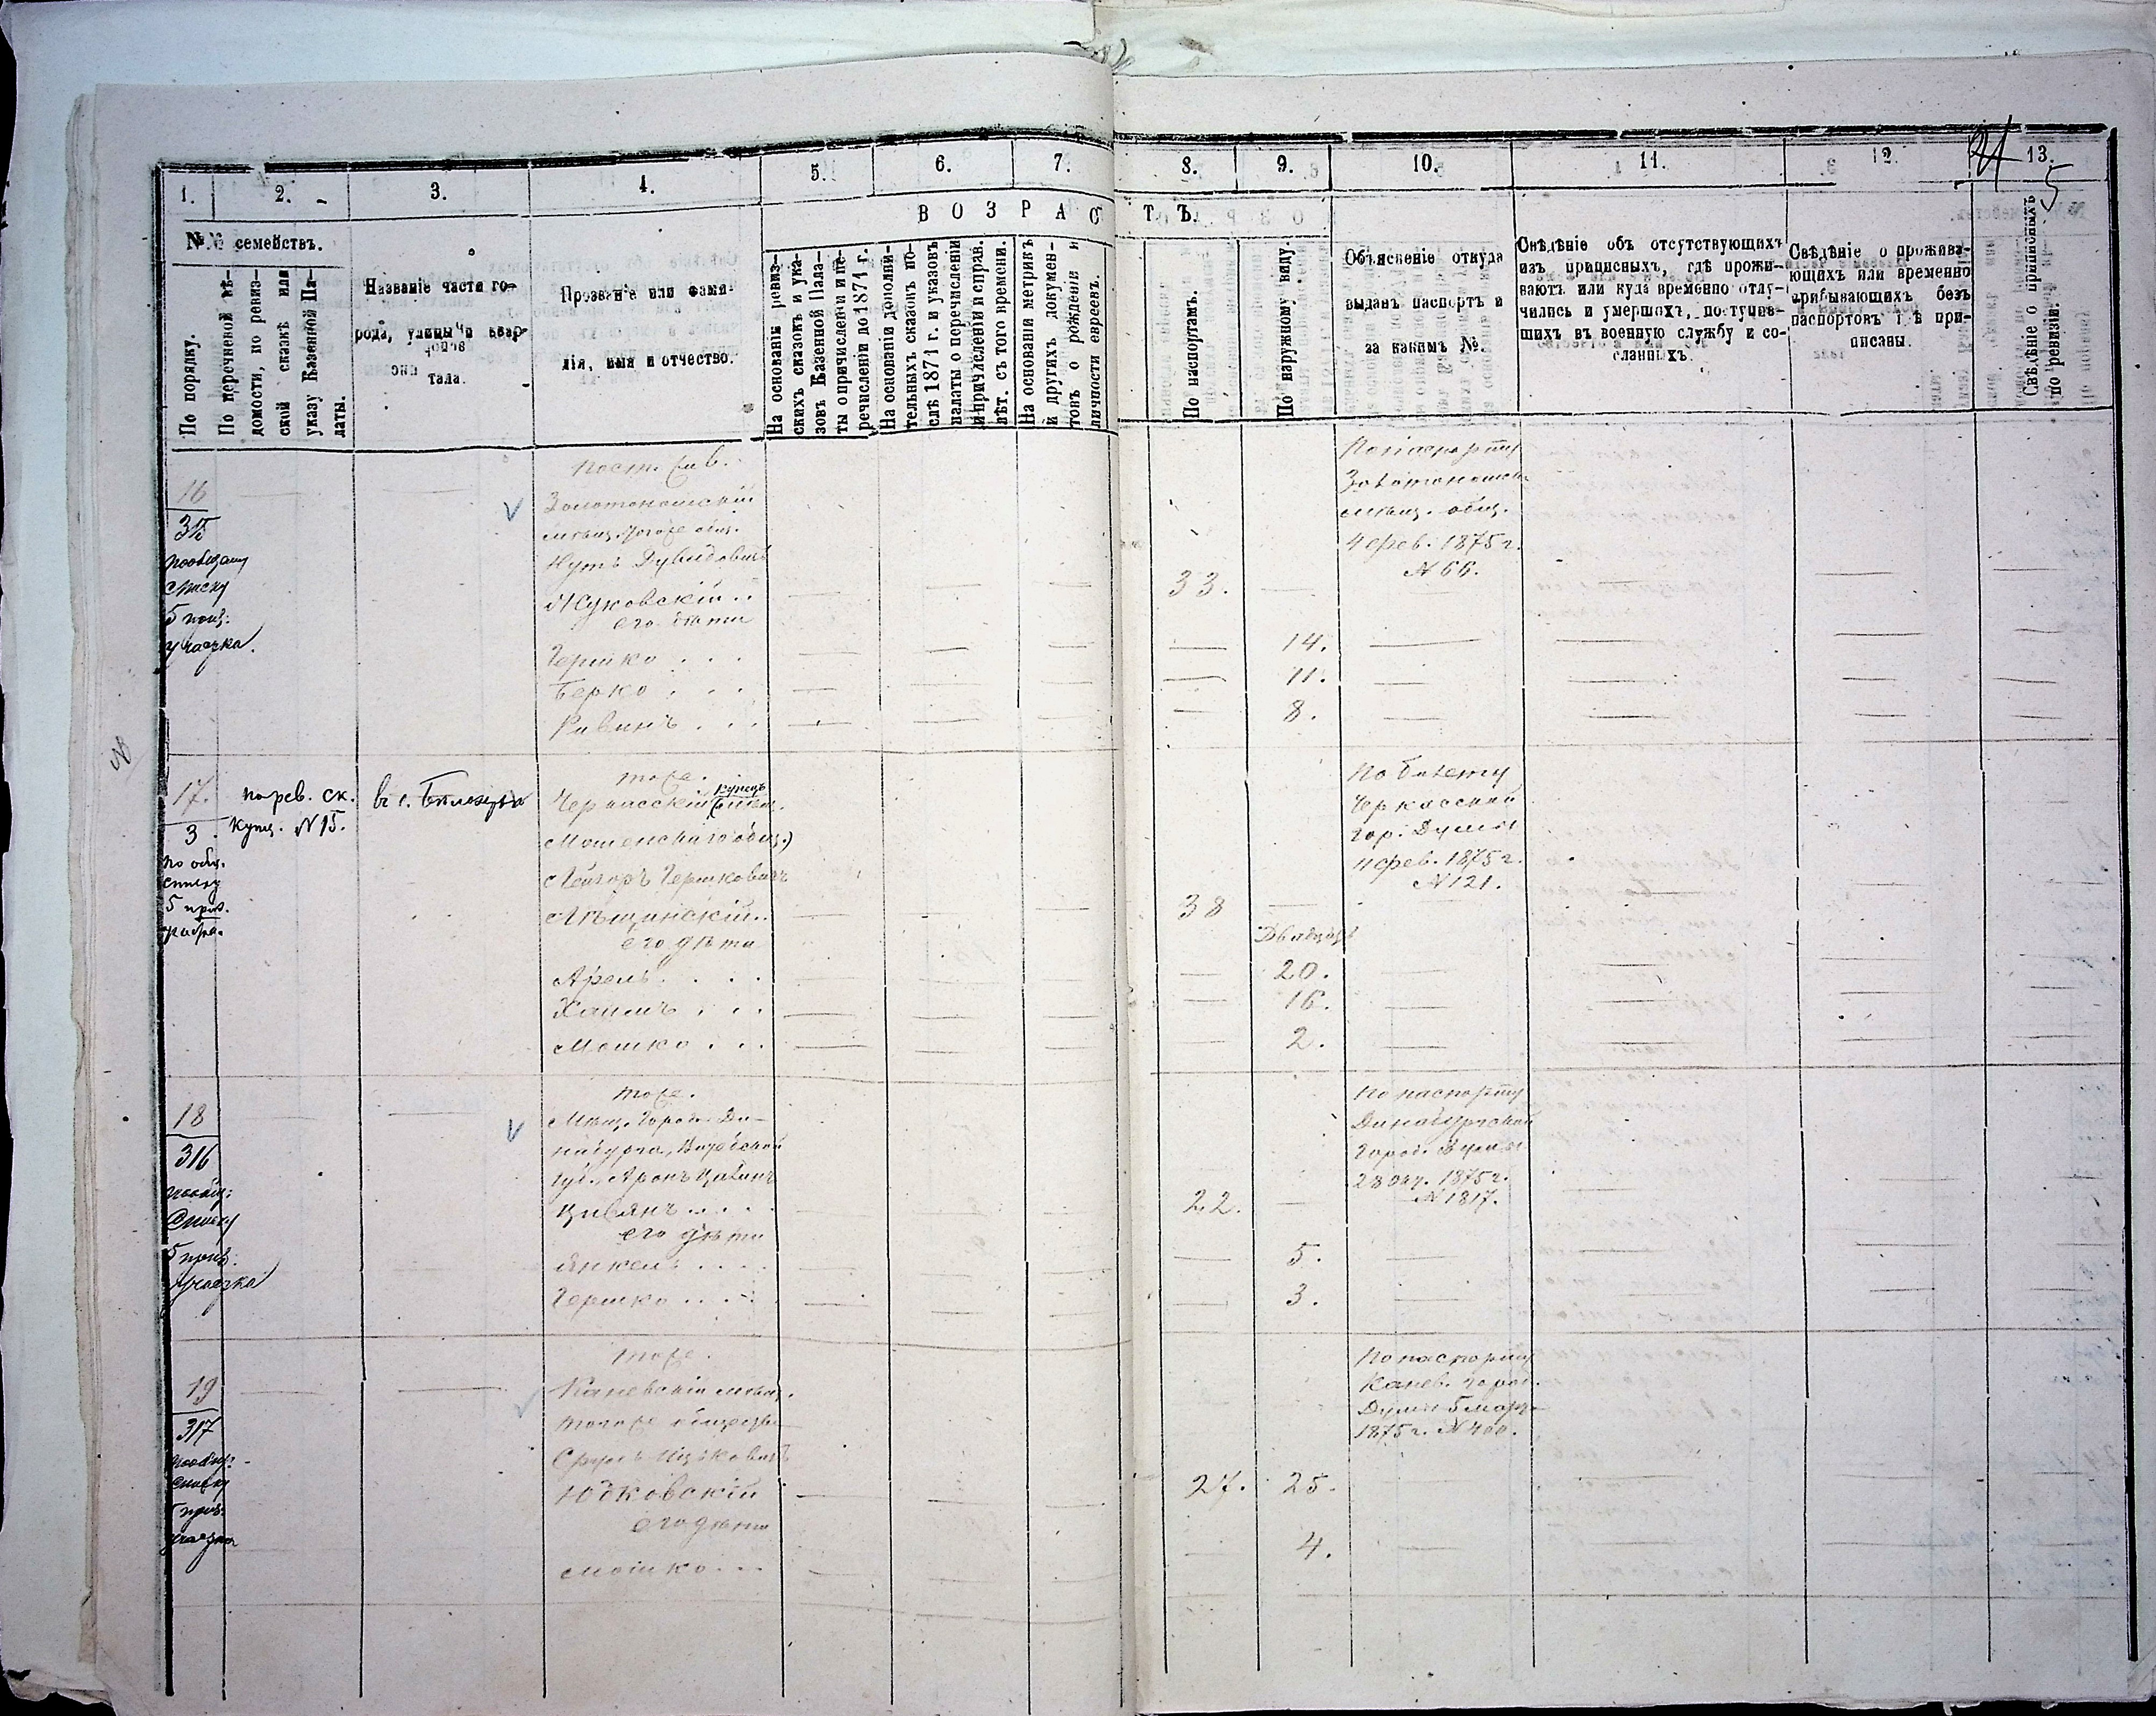 1. 2. 3. 4. 5. 6. 7. 8. 9. 10. 11. 12. 13.
21
5
№№ семействъ.
В О З Р А С Т Ъ.
По порядку.
По перечневой вѣ-
домости, по ревиз-
ской сказкѣ или
указу Казенной Па-
латы.
Названіе части го-
рода, улицы и квар-
тала.
Прозваніе или фами-
лія, имя и отчество.
На основаніи ревиз-
скихъ сказокъ и ука-
зовъ Казенной Пала-
ты о причисленіи и пе-
речисленіи до 1871 г.
На основаніи дополни-
тельныхъ сказокъ по-
слѣ 1871 г. и указовъ
палаты о перечисленіи
и причисленіи и справ.
лѣт. съ того времени.
На основаніи метрикъ
и другихъ докумен-
товъ о рожденіи и
личности евреевъ.
По паспортамъ.
По наружному виду.
Объясненіе откуда
выданъ паспортъ и
за какимъ №.
Свѣдѣніе объ отсутствующихъ
изъ приписныхъ, гдѣ прожи-
ваютъ или куда временно отлу-
чились и умершихъ, поступив-
шихъ въ военную службу и со-
сланныхъ.
Свѣдѣніе о прожива-
ющихъ или временно
прибывающихъ безъ
паспортовъ гдѣ при-
писаны.
Свѣдѣніе о приписныхъ
по ревизіи.
16
315
по общему
списку
5 приз.
участка.
Золотоношскій
мѣщ. того же общ.
Нутъ Дувидовичъ
Жуковскій..
его дѣти
33.
Гершко . . . 14.
Берко . . . 11.
Рувинъ . . . 8.
По паспорту
Золотоношск.
мѣщ. общ.
4 фев. 1875 г.
№ 66.
17.
3
по общ.
списку
5 приз.
по рев. ск.
купц. № 15.
в с.
тоже.
купецъ
Черкасскій
Мошенскаго общ.)
Лейзоръ Гершковичъ
его дѣти
38
Двадцать
Арель . . . 20.
Хаимъ . . . 16.
Мошко . . . 2.
По билету
Черкасской
гор. Думы
11 фев. 1875 г.
№ 121.
18
316
по общ:
списку
5 приз.
участка
тоже.
Мѣщ. город. Ди-
набурга, Витебской
губ., Аронъ
его дѣти
22.
Янкель . . . . 5.
Гершко . . . 3.
По паспорту
Динабургской
Город. Думы
28 окт. 1875 г.
№ 1817.
19
317
по общ:
списку
5 приз.
участка
тоже.
Каневскій мѣщ.
того же общества
Сруль Ицьковичъ
Юдковскій
его дѣти
27. 25.
Мошко... 4.
По паспорту
Канев. город.
Думы 5 март.
1875 г. № 400.